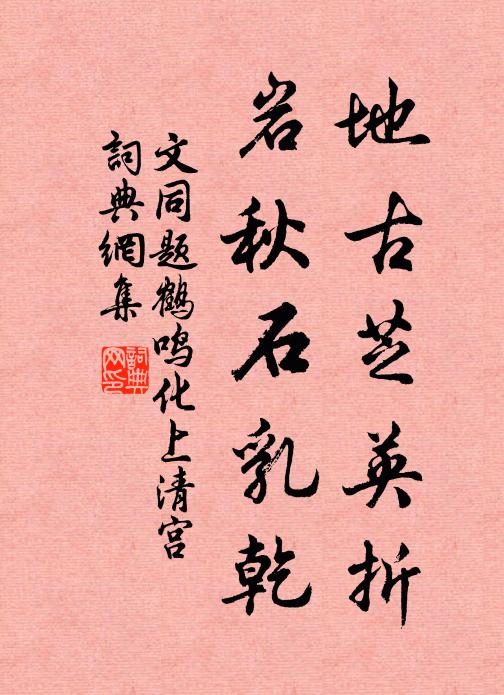 地古芝英折
岩秋石乳乾
文同题鹤鸣化上清宫
詞典網集
詞典網印